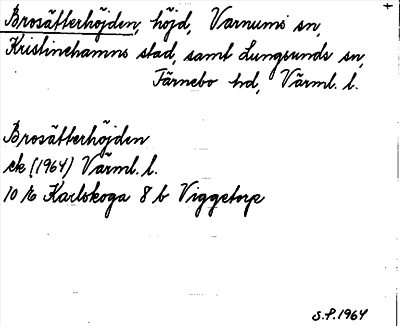 Brosätterhöjden, höjd, Varnums sn,
Kristinehamns stad, samt Lungsunds sn,
Färnebo hd, Värml. l.
Brosätterhöjden
ek (1964) Värml. l.
10 E Karlskoga 8 b Viggetorp
S.P. 1964